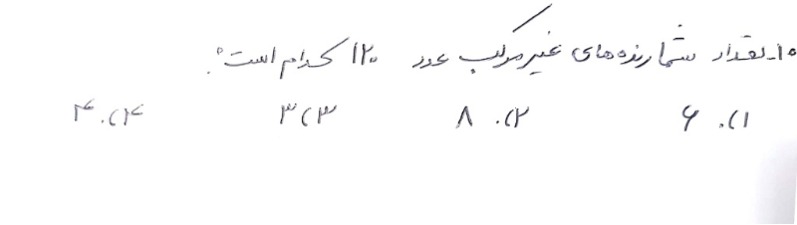 ۱۰- تعداد شمارنده‌های غیر مرکب عدد ۱۲۰ کدام است؟
۱). ۶ ۲). ۸ ۳) ۳ ۴). ۴